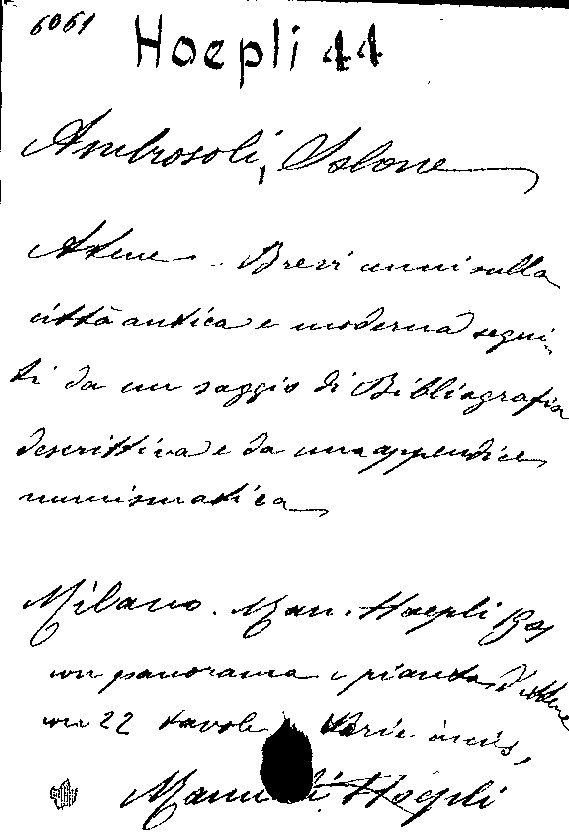 6061 Hoepli 44
Ambrosoli, Solone
Atene - Brevi cenni sulla
città antica e moderna segui-
ti da un saggio di Bibliografia
descrittiva e da una appendice
numismatica
Milano. Man. Hoepli
con panorama e pianta d'Atene
con 22 tavole varie incis,
Manuali Hoepli